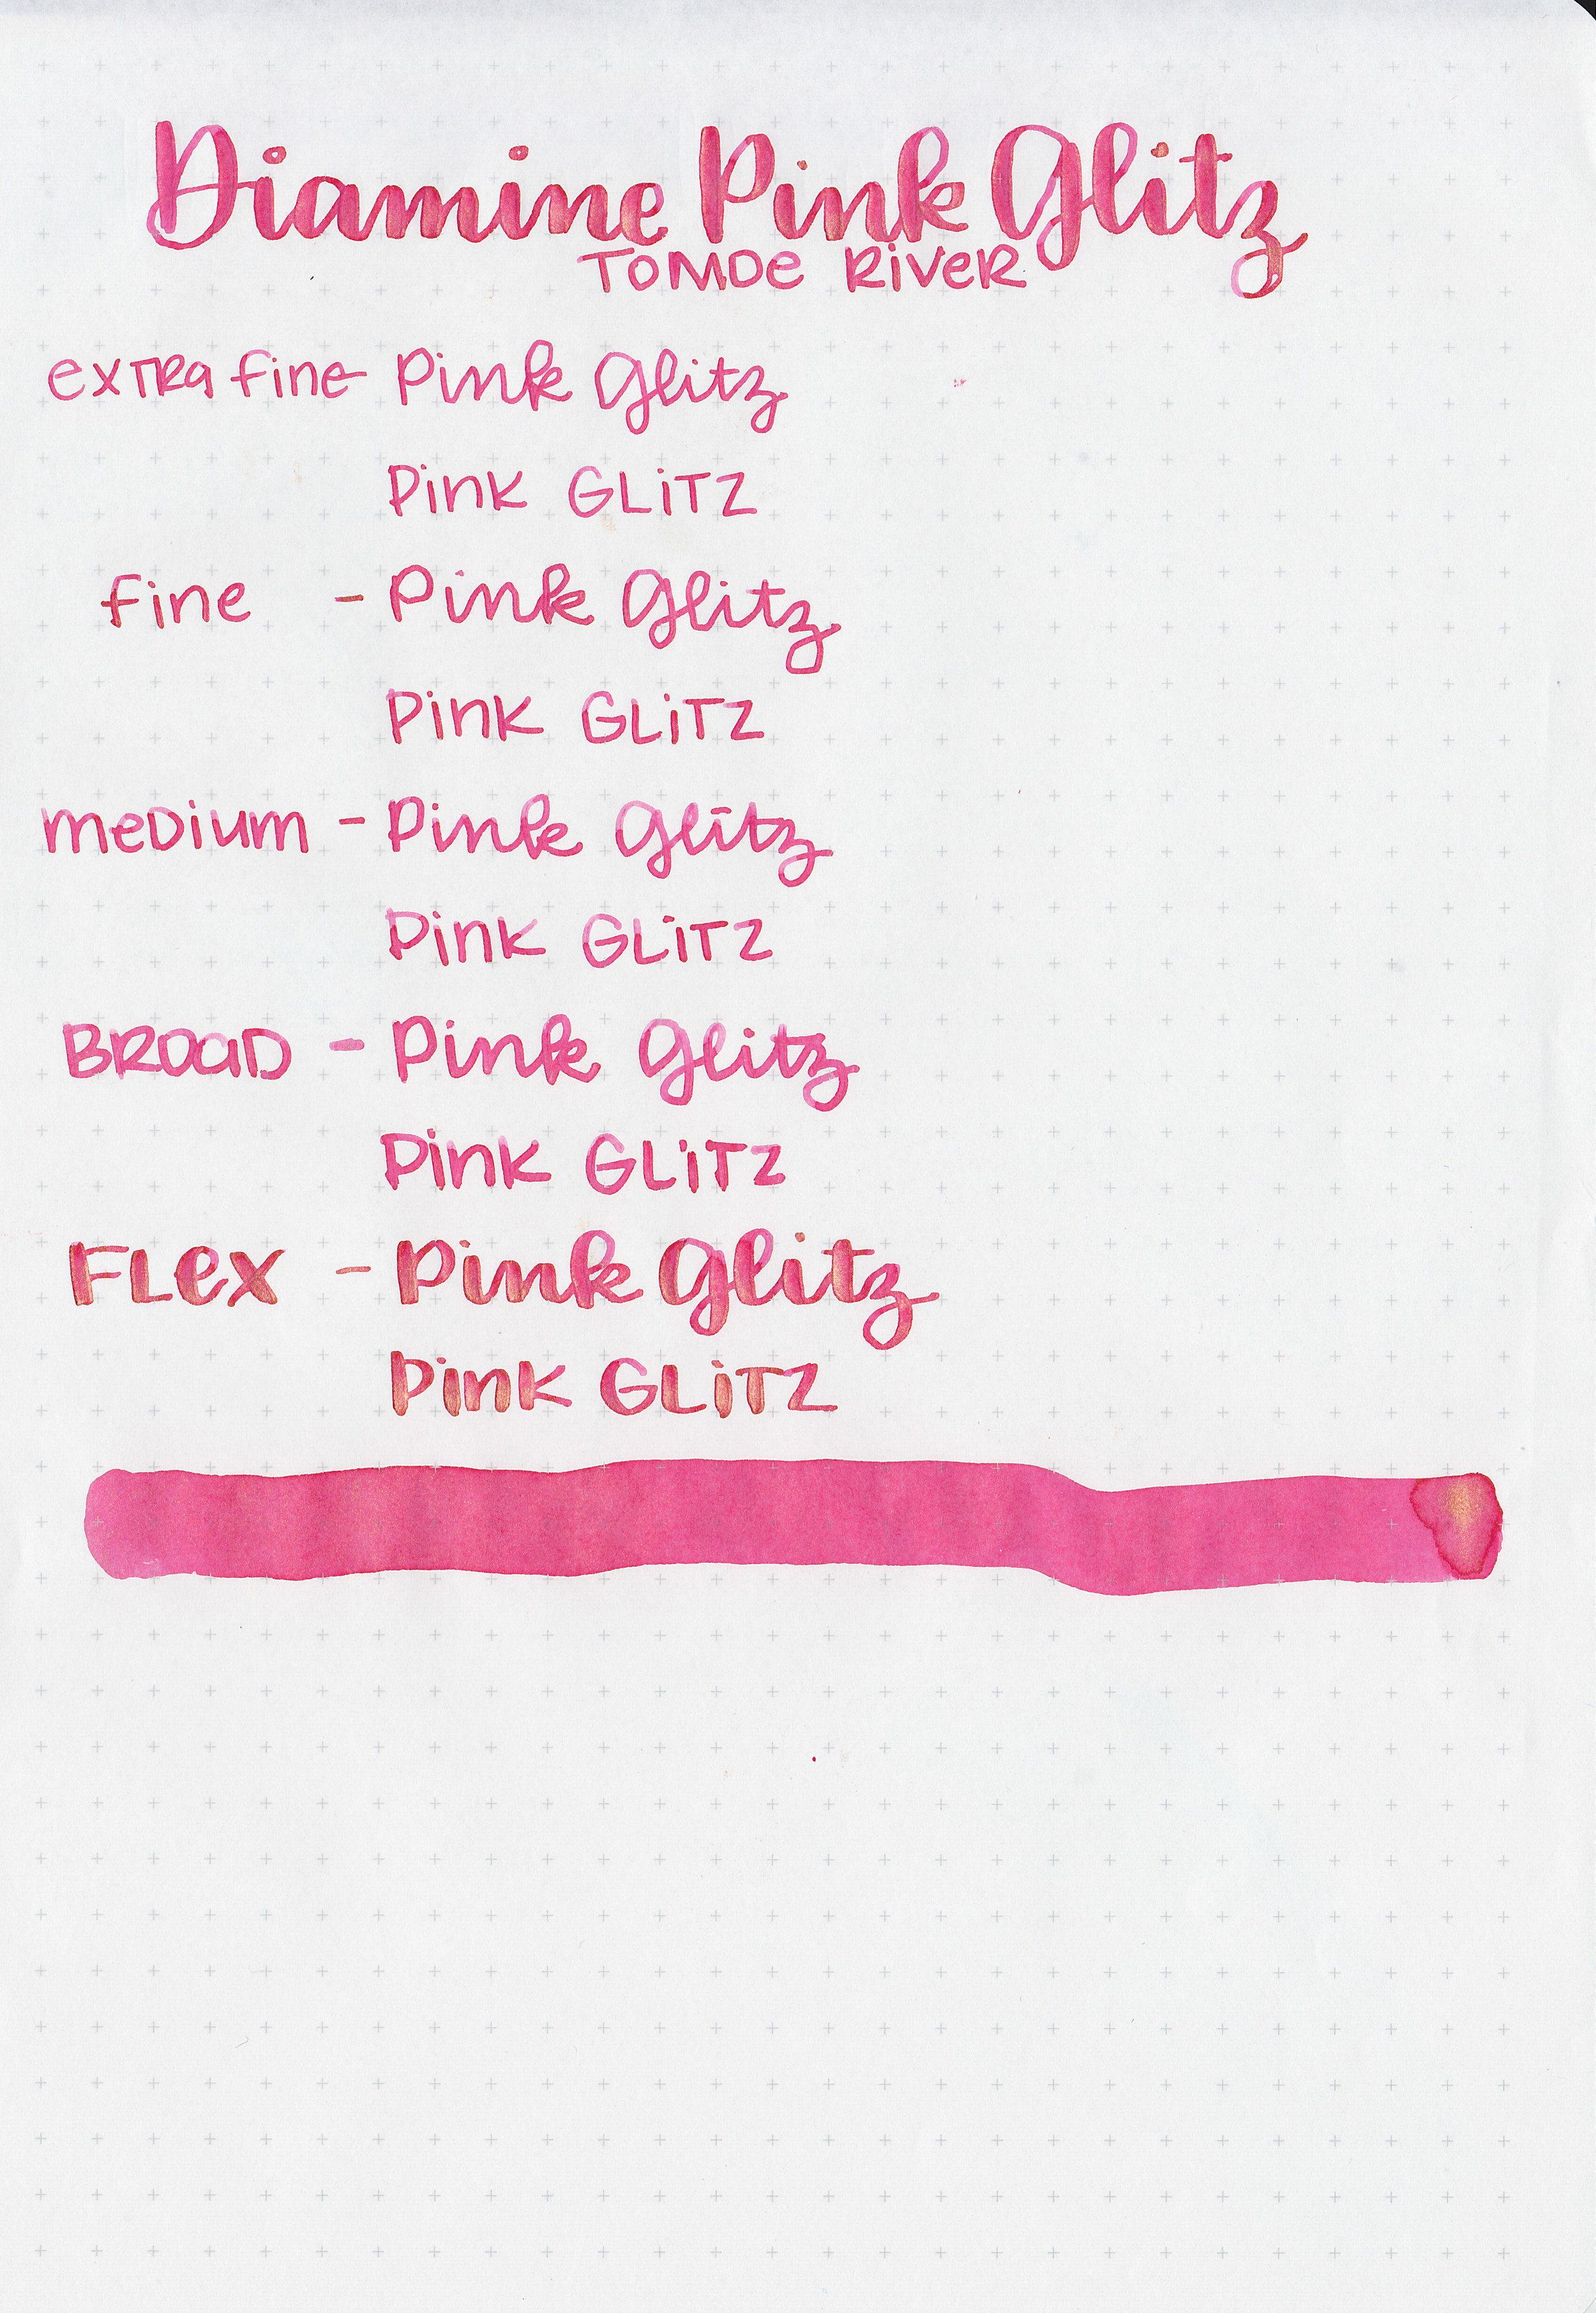 Diamine Pink Glitz
TOMOe RiVeR
exTRa fine - Pink Glitz
Pink GLiTZ
fine - Pink Glitz
Pink GLiTZ
meDium - Pink Glitz
Pink GLiTZ
BROaD - Pink Glitz
Pink GLiTZ
FLex - Pink Glitz
Pink GLiTZ